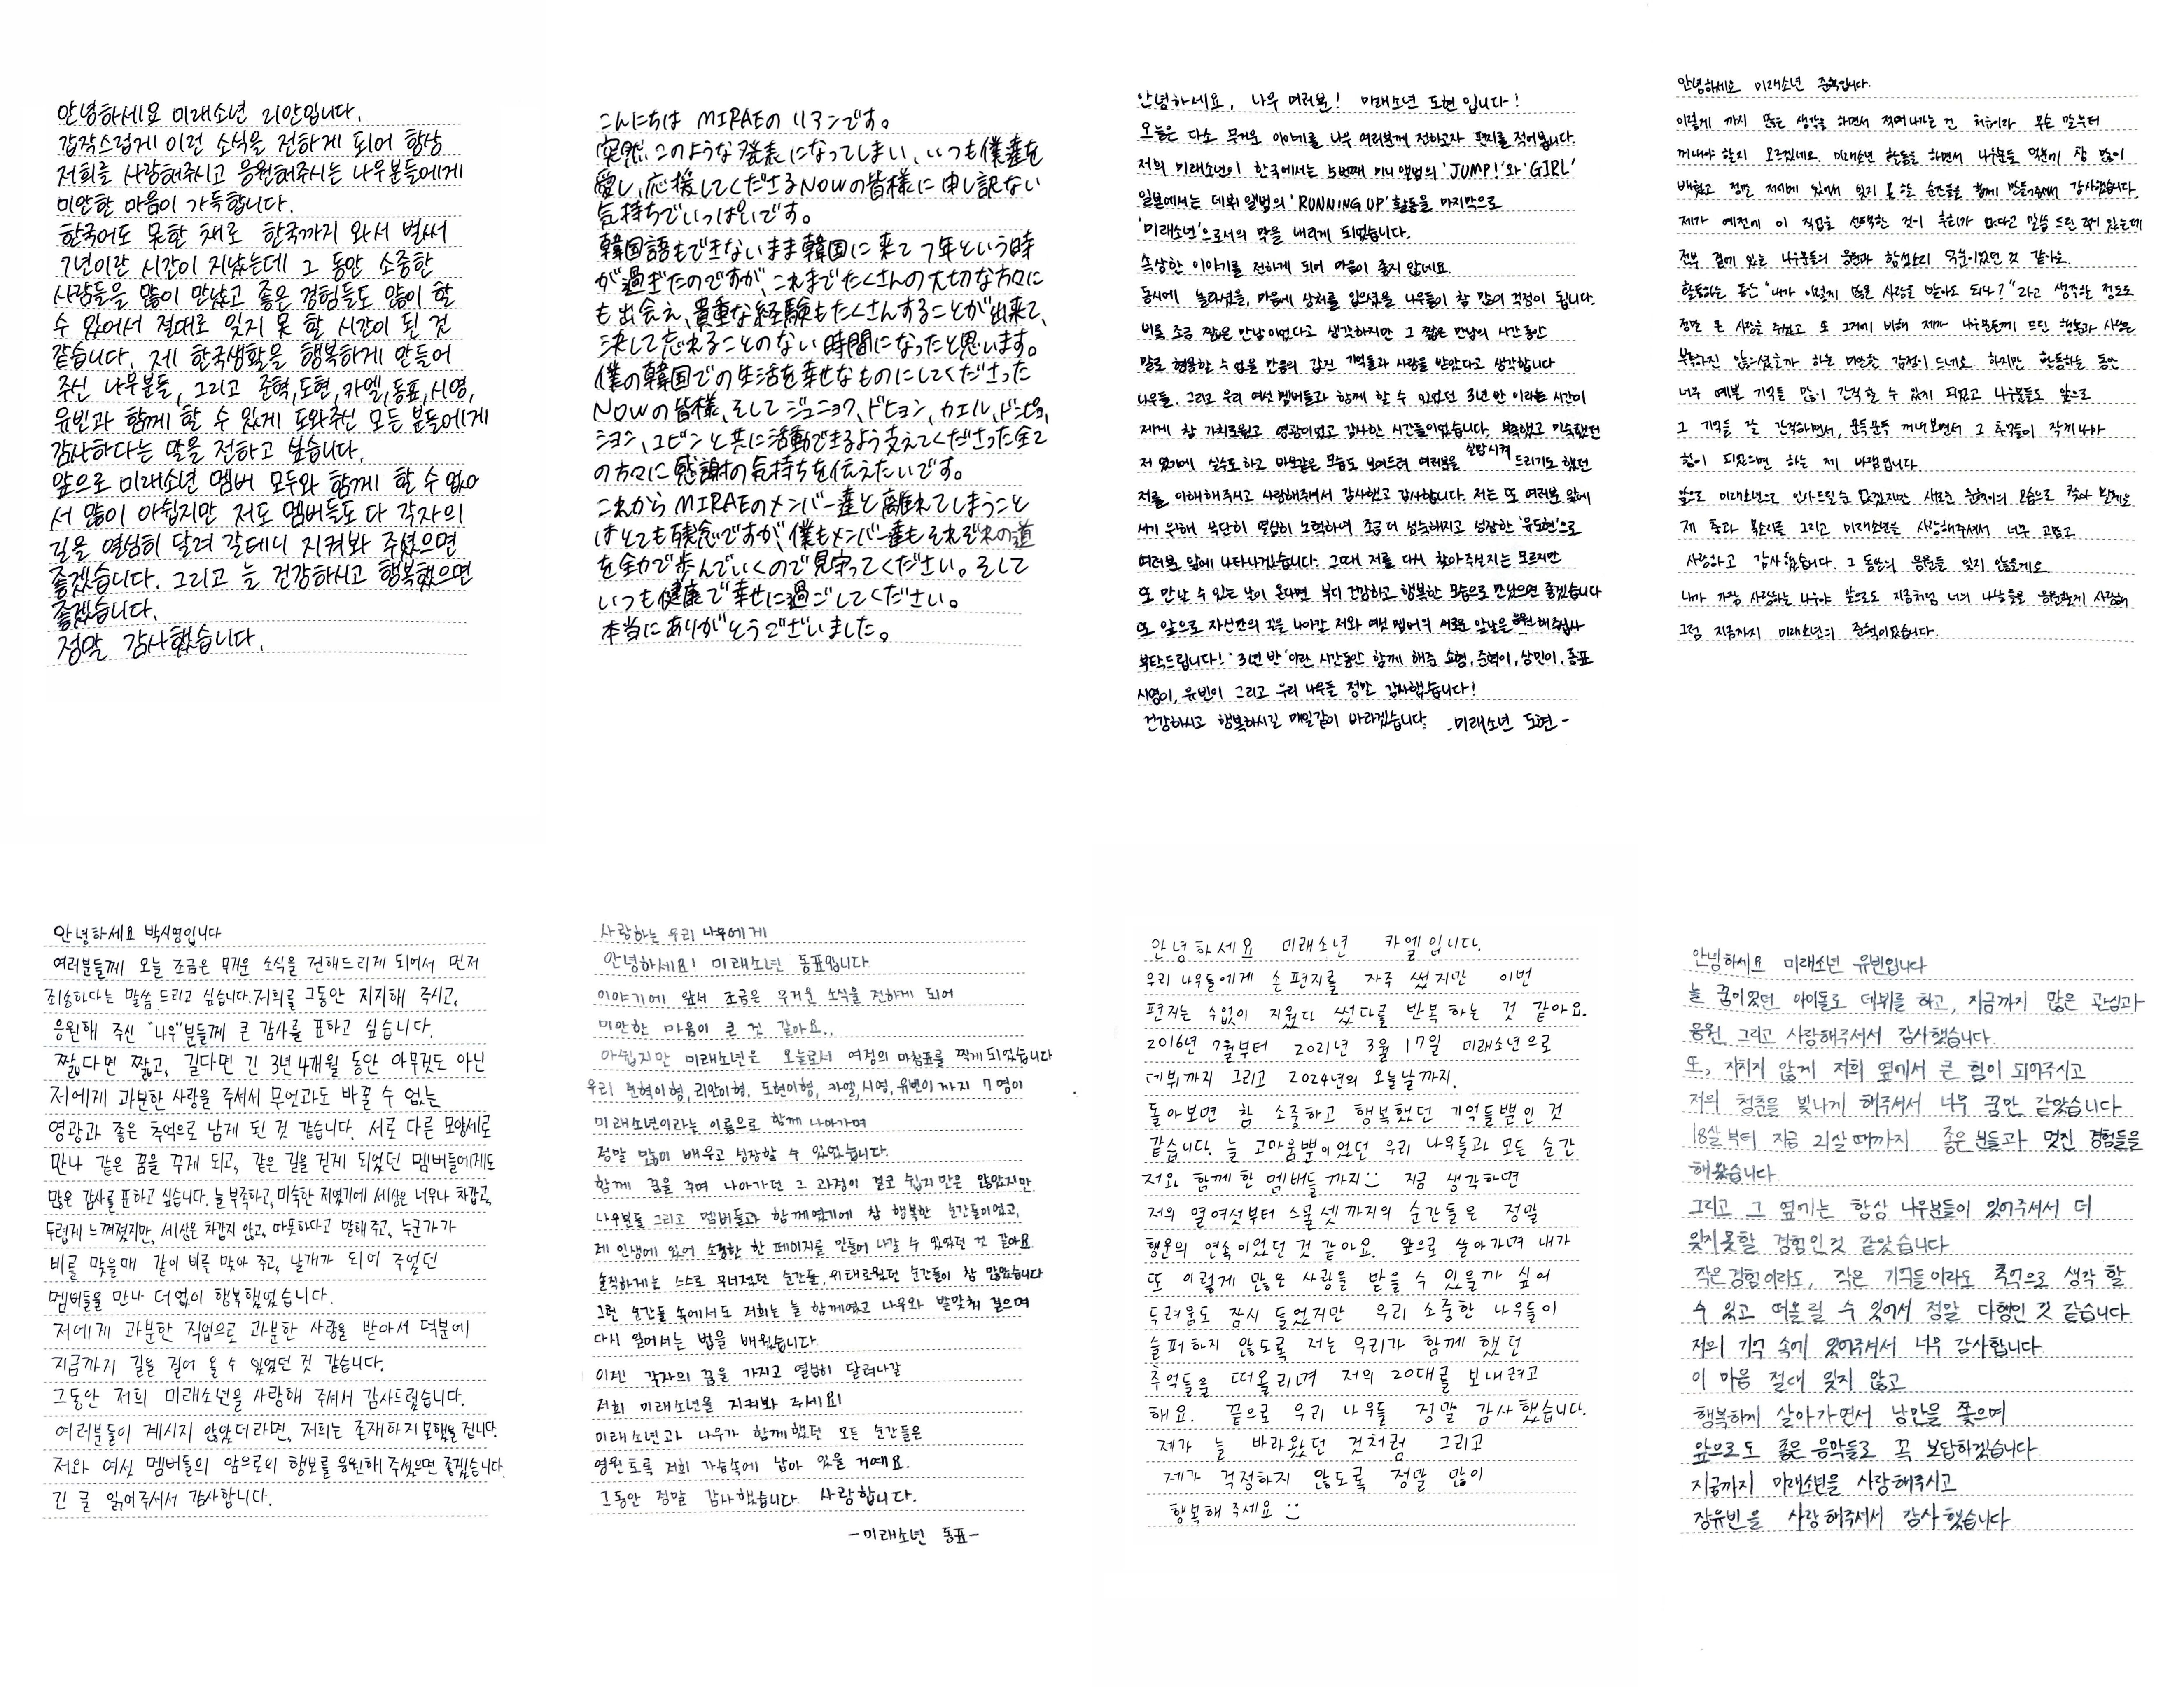 안녕하세요 미래소년 리안입니다.
갑작스럽게 이런 소식을 전하게 되어 항상
저희를 사랑해주시고 응원해주시는 나우분들에게
미안한 마음이 가득합니다.
한국어도 못한 채로 한국까지 와서 벌써
7년이란 시간이 지났는데 그 동안 소중한
사람들을 많이 만났고 좋은 경험들도 많이 할
수 있어서 절대로 잊지 못 할 시간이 된 것
같습니다. 제 한국생활을 행복하게 만들어
주신 나우분들, 그리고 준혁,도현,카엘,동표,시영,
유빈과 함께 할 수 있게 도와주신 모든 분들에게
감사하다는 말을 전하고 싶습니다.
앞으로 미래소년 멤버 모두와 함께 할 수 없어
서 많이 아쉽지만 저도 멤버들도 다 각자의
길을 열심히 달려 갈테니 지켜봐 주셨으면
좋겠습니다. 그리고 늘 건강하시고 행복했으면
좋겠습니다.
정말 감사했습니다.
こんにちは MIRAEの リアンです。
突然、このような発表になってしまい、いつも僕達を
愛し、応援してくださるNOWの皆様に申し訳ない
気持ちでいっぱいです。
韓国語もできないまま韓国に来て7年という時
が過ぎたのですが、これまでたくさんの大切な方々に
も出会え、貴重な経験もたくさんすることが出来て、
決して忘れることのない時間になったと思います。
僕の韓国での生活を幸せなものにしてくださった
NOWの皆様、そしてジュニョク、ドヒョン、カエル、ドンピョ、
ション、ユビンと共に活動できるよう支えてくださった全て
の方々に感謝の気持ちを伝えたいです。
これからMIRAEのメンバー達と離れてしまうこと
はとても残念ですが、僕もメンバー達もそれぞれの道
を全力で歩んでいくので見守ってください。そして
いつも健康で幸せに過ごしてください。
本当にありがとうございました。
안녕하세요, 나우 여러분! 미래소년 도현입니다!
오늘은 다소 무거운 이야기를 나우 여러분께 전하고자 편지를 적어봅니다.
저희 미래소년이 한국에서는 5번째 미니 앨범의 'JUMP!'와 'GIRL'
일본에서는 데뷔 앨범의 'RUNNING UP' 활동을 마지막으로
'미래소년'으로서의 막을 내리게 되었습니다.
속상한 이야기를 전하게 되어 마음이 좋지 않네요.
동시에 놀라셨을, 마음에 상처를 입으셨을 나우들이 참 많이 걱정이 됩니다.
비록 조금 짧은 만남이었다고 생각하지만 그 짧은 만남의 시간동안
말로 형용할 수 없을 만큼의 값진 기억들과 사랑을 받았다고 생각합니다
나우들, 그리고 우리 여섯 멤버들과 함께 할 수 있었던 3년 반 이라는 시간이
제게 참 가치로웠고 영광이었고 감사한 시간들이었습니다. 부족했고 미숙했던
저 였기에 실수도 하고 바보같은 모습도 보여드려 여러분을 실망시켜 드리기도 했던
저를 이해해주시고 사랑해주셔서 감사했고 감사합니다. 저는 또 여러분 앞에
서기 위해 부단히 열심히 노력하여 조금 더 성숙해지고 성장한 '유도현'으로
여러분 앞에 나타나겠습니다. 그때 저를 다시 찾아주실지는 모르지만
또 만날 수 있는 날이 온다면 부디 건강하고 행복한 모습으로 만났으면 좋겠습니다
또 앞으로 자신만의 길을 나아갈 저와 여섯 멤버의 새로운 앞날을 응원해주십사
부탁드립니다! '3년 반'이란 시간동안 함께 해준 쇼형, 준혁이, 상민이, 동표
시영이, 유빈이 그리고 우리 나우들 정말 감사했습니다!
건강하시고 행복하시길 매일같이 바라겠습니다. -미래소년 도현-
안녕하세요 미래소년 준혁입니다.
이렇게 까지 많은 생각을 하면서 적어내리는 건 처음이라 무슨 말부터
꺼내야 할지 모르겠네요. 미래소년 활동을 하면서 나우분들 덕분에 참 많이
배웠고 정말 저에게 있어서 잊지 못 할 순간들을 함께 만들어주셔서 감사했습니다.
제가 예전에 이 직업을 선택한 것이 후회가 없다고 말씀 드린 적이 있는데
전부 곁에 있는 나우분들의 응원과 함성소리 덕분이었던 것 같아요.
활동하는 동안 "내가 이렇게 많은 사랑을 받아도 되나?"라고 생각할 정도로
정말 큰 사랑을 주셨고 또 그거에 비해 제가 나우분들께 드린 행복과 사랑은
부족하진 않으셨을까 하는 미안한 감정이 드네요. 하지만 활동하는 동안
너무 예쁜 기억들 많이 간직할 수 있게 되었고 나우분들도 앞으로
그 기억을 잘 간직하면서, 문득문득 꺼내보면서 그 추억들이 작게나마
힘이 되었으면 하는 제 바램입니다.
앞으로 미래소년으로 인사드릴 순 없겠지만 새로운 준혁이의 모습으로 찾아 뵐게요
제 춤과 목소리를 그리고 미래소년을 사랑해주셔서 너무 고맙고
사랑하고 감사했습니다. 그 동안의 응원들 잊지 않을게요
내가 가장 사랑하는 나우야 앞으로도 지금처럼 너의 나날들을 응원할게 사랑해
그럼 지금까지 미래소년의 준혁이었습니다.
안녕하세요 박시영입니다
여러분들께 오늘 조금은 무거운 소식을 전해드리게 되어서 먼저
죄송하다는 말씀 드리고 싶습니다. 저희를 그동안 지지해 주시고,
응원해 주신 "나우"분들께 큰 감사를 표하고 싶습니다.
짧다면 짧고, 길다면 긴 3년 4개월 동안 아무것도 아닌
저에게 과분한 사랑을 주셔서 무엇과도 바꿀 수 없는
영광과 좋은 추억으로 남게 된 것 같습니다. 서로 다른 모양새로
만나 같은 꿈을 꾸게 되고, 같은 길을 걷게 되었던 멤버들에게도
많은 감사를 표하고 싶습니다. 늘 부족하고, 미숙한 저였기에 세상은 너무나 차갑고,
두렵게 느껴졌지만, 세상은 차갑지 않고, 따뜻하다고 말해 주고, 누군가가
비를 맞을때 같이 비를 맞아 주고, 날개가 되어 주었던
멤버들을 만나 더없이 행복했었습니다.
저에게 과분한 직업으로 과분한 사랑을 받아서 덕분에
지금까지 길을 걸어 올 수 있었던 것 같습니다.
그동안 저희 미래소년을 사랑해 주셔서 감사드렸습니다.
여러분들이 계시지 않았더라면, 저희는 존재하지 못했을 겁니다.
저와 여섯 멤버들의 앞으로의 행보를 응원해 주셨으면 좋겠습니다
긴 글 읽어주셔서 감사합니다.
사랑하는 우리 나우에게
안녕하세요! 미래소년 동표입니다
이야기에 앞서 조금은 무거운 소식을 전하게 되어
미안한 마음이 큰 것 같아요..
아쉽지만 미래소년은 오늘로서 여정의 마침표를 찍게 되었습니다
우리 준혁이형, 리안이형, 도현이형, 카엘, 시영, 유빈이까지 7명이
미래소년이라는 이름으로 함께 나아가며
정말 많이 배우고 성장할 수 있었습니다.
함께 꿈을 꾸며 나아가던 그 과정이 결코 쉽지만은 않았지만
나우분들 그리고 멤버들과 함께였기에 참 행복한 순간들이었고,
제 인생에 있어 소중한 한 페이지를 만들어 나갈 수 있었던 것 같아요
솔직하게는 스스로 무너졌던 순간들, 위태로웠던 순간들이 참 많았습니다
그런 순간들 속에서도 저희는 늘 함께였고 나우와 발맞춰 걸으며
다시 일어서는 법을 배웠습니다
이젠 각자의 꿈을 가지고 열심히 달려나갈
저희 미래소년을 지켜봐 주세요!
미래소년과 나우가 함께했던 모든 순간들은
영원토록 저희 가슴속에 남아 있을 거예요.
그동안 정말 감사했습니다 사랑합니다.
-미래소년 동표-
안녕하세요 미래소년 카엘입니다.
우리 나우들에게 손 편지를 자주 썼지만 이번
편지는 수없이 지웠다 썼다를 반복하는 것 같아요.
2016년 7월부터 2021년 3월 17일 미래소년으로
데뷔까지 그리고 2024년의 오늘날까지.
돌아보면 참 소중하고 행복했던 기억들뿐인 것
같습니다. 늘 고마움뿐이었던 우리 나우들과 모든 순간
저와 함께 한 멤버들 까지 지금 생각하면
저의 열여섯부터 스물셋까지의 순간들은 정말
행운의 연속이었던 것 같아요. 앞으로 살아가며 내가
또 이렇게 많은 사랑을 받을 수 있을까 싶어
두려움도 잠시 들었지만 우리 소중한 나우들이
슬퍼하지 않도록 저는 우리가 함께 했던
추억들을 떠올리며 저의 20대를 보내려고
해요. 끝으로 우리 나우들 정말 감사했습니다.
제가 늘 바라왔던 것처럼 그리고
제가 걱정하지 않도록 정말 많이
행복해 주세요
안녕하세요 미래소년 유빈입니다
늘 꿈이었던 아이돌로 데뷔를 하고, 지금까지 많은 관심과
응원 그리고 사랑해주셔서 감사했습니다.
또, 지치지 않게 저희 옆에서 큰 힘이 되어주시고
저의 청춘을 빛나게 해주셔서 너무 꿈만 같았습니다
18살부터 지금 21살 때까지 좋은 분들과 멋진 경험들을
해왔습니다
그리고 그 옆에는 항상 나우분들이 있어주셔서 더
잊지못할 경험인것 같았습니다
작은 경험이라도, 작은 기억들이라도 추억으로 생각 할
수 있고 떠올릴 수 있어서 정말 다행인 것 같습니다
저의 기억 속에 있어주셔서 너무 감사합니다
이 마음 절대 잊지 않고
행복하게 살아가면서 낭만을 쫓으며
앞으로도 좋은 음악들로 꼭 보답하겠습니다
지금까지 미래소년을 사랑해주시고
장유빈을 사랑해주셔서 감사했습니다